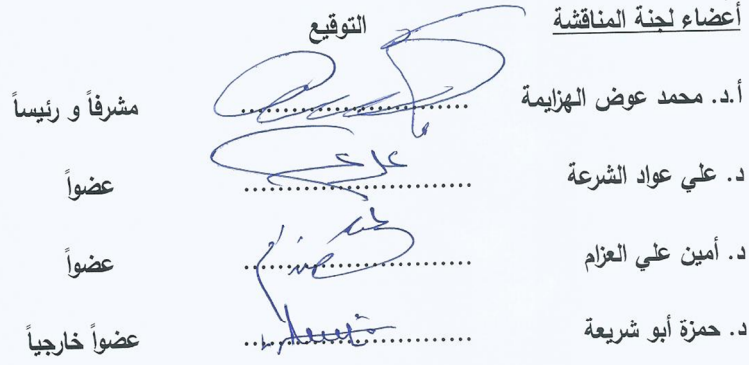 أعضاء لجنة المناقشة التوقيع
أ.د. محمد عوض الهزايمة ............................ مشرفاً و رئيساً
د. علي عواد الشرعة ............................ عضواً
د. أمين علي العزام ............................ عضواً
د. حمزة أبو شريعة ............................ عضواً خارجياً